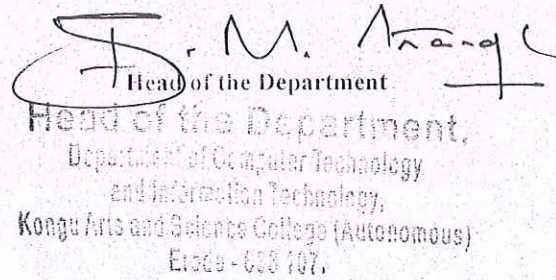 Head of the Department
Head of the Department,
Department of Computer Technology
and Information Technology,
Kongu Arts and Science College (Autonomous)
Erode - 638 107.